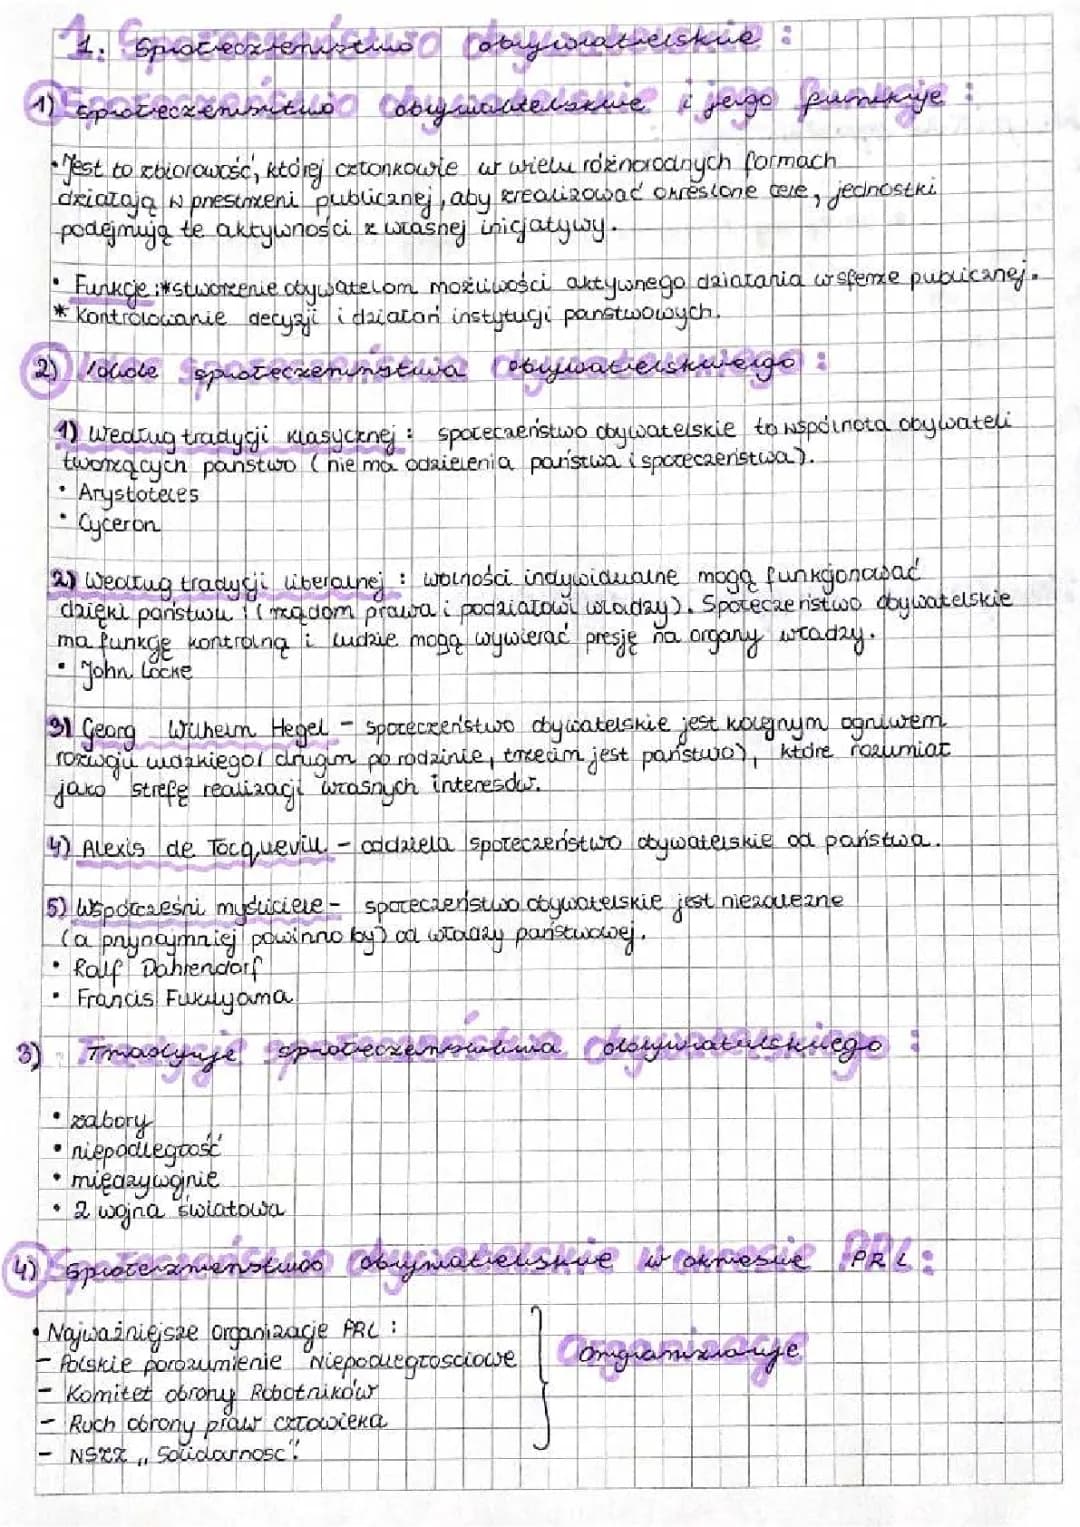 1. Społeczeństwo obywatelskie :
1) społeczeństwo obywatelskie i jego funkcje :
• Jest to zbiorowość, której członkowie w wielu różnorodnych formach
działają w przestrzeni publicznej, aby zrealizować określone cele, jednostki
podejmują te aktywności z własnej inicjatywy.
• Funkcje : * stworzenie obywatelom możliwości aktywnego działania w sferze publicznej.
* Kontrolowanie decyzji i działań instytucji państwowych.
2) społeczeństwa obywatelskiego :
1) Według tradycji klasycznej : społeczeństwo obywatelskie to wspólnota obywateli
tworzących państwo (nie ma oddzielenia państwa i społeczeństwa).
• Arystoteles
• Cyceron
2) Według tradycji liberalnej : wolności indywidualne mogą funkcjonować
dzięki państwu ! (rządom prawa i podziałowi władzy). Społeczeństwo obywatelskie
ma funkcję kontrolną i ludzie mogą wywierać presję na organy władzy.
• John Locke
3) Georg Wilhelm Hegel - społeczeństwo obywatelskie jest kolejnym ogniwem
rozwoju ludzkiego( drugim po rodzinie, trzecim jest państwo), które rozumiał
jako strefę realizacji własnych interesów.
4) Alexis de Tocquevill - oddziela społeczeństwo obywatelskie od państwa.
5) Współcześni myśliciele - społeczeństwo obywatelskie jest niezależne
(a przynajmniej powinno by) od władzy państwowej.
• Ralf Dahrendorf
• Francis Fukuyama
3) Tradycje społeczeństwa obywatelskiego :
• zabory
• niepodległość
• międzywojnie
• 2 wojna światowa
4) Społeczeństwo obywatelskie w okresie PRL :
• Najważniejsze organizacje PRL :
- Polskie porozumienie Niepodległościowe
- Komitet obrony Robotników
- Ruch obrony praw człowieka
- NSZZ „Solidarność".
Organizacje